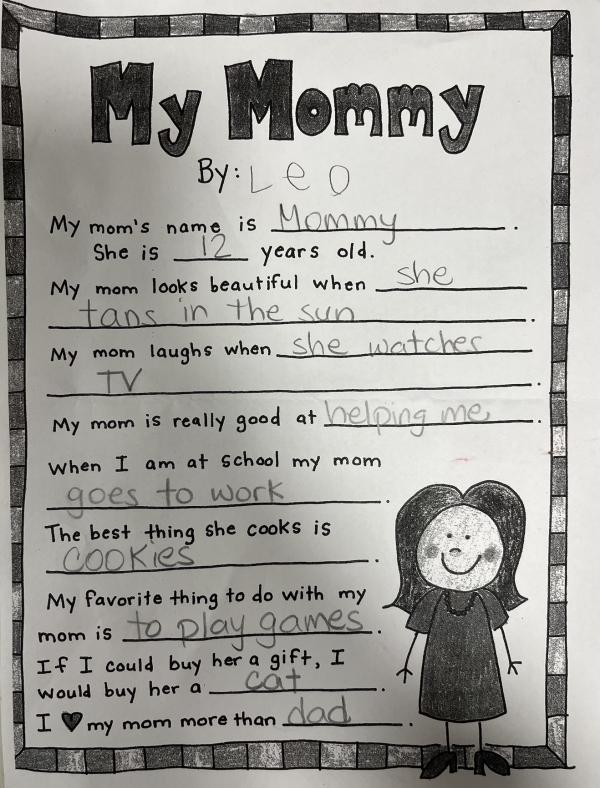 My Mommy
By: Leo
My mom's name is Mommy.
She is 12 years old.
My mom looks beautiful when she
tans in the sun.
My mom laughs when she watches
TV.
My mom is really good at helping me.
When I am at school my mom
goes to work.
The best thing she cooks is
cookies.
My favorite thing to do with my
mom is to play games.
If I could buy her a gift, I
would buy her a cat.
I ♥ my mom more than dad.